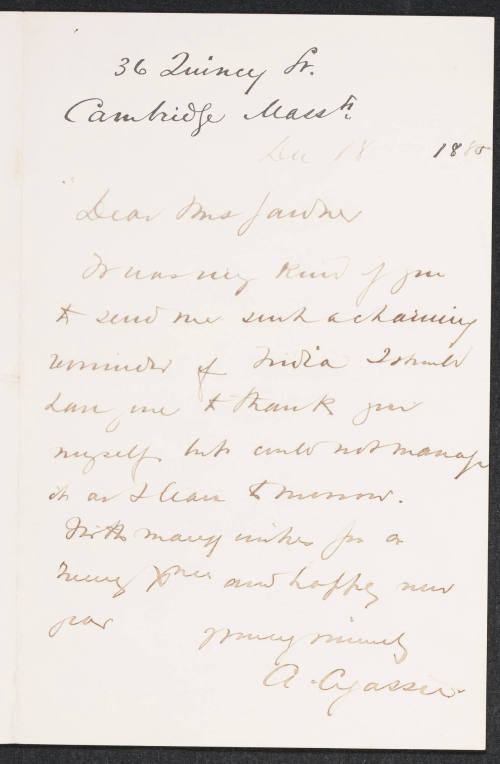 36 Quincy St.
Cambridge Massts.
Dec 18 1885
Dear Mrs Gardner
It was very kind of you
to send me such a charming
reminder of India I should
have come to thank you
myself but could not manage
it as I leave tomorrow.
With many wishes for a
merry Xmas and happy new
year
yours sincerely
A. Agassiz